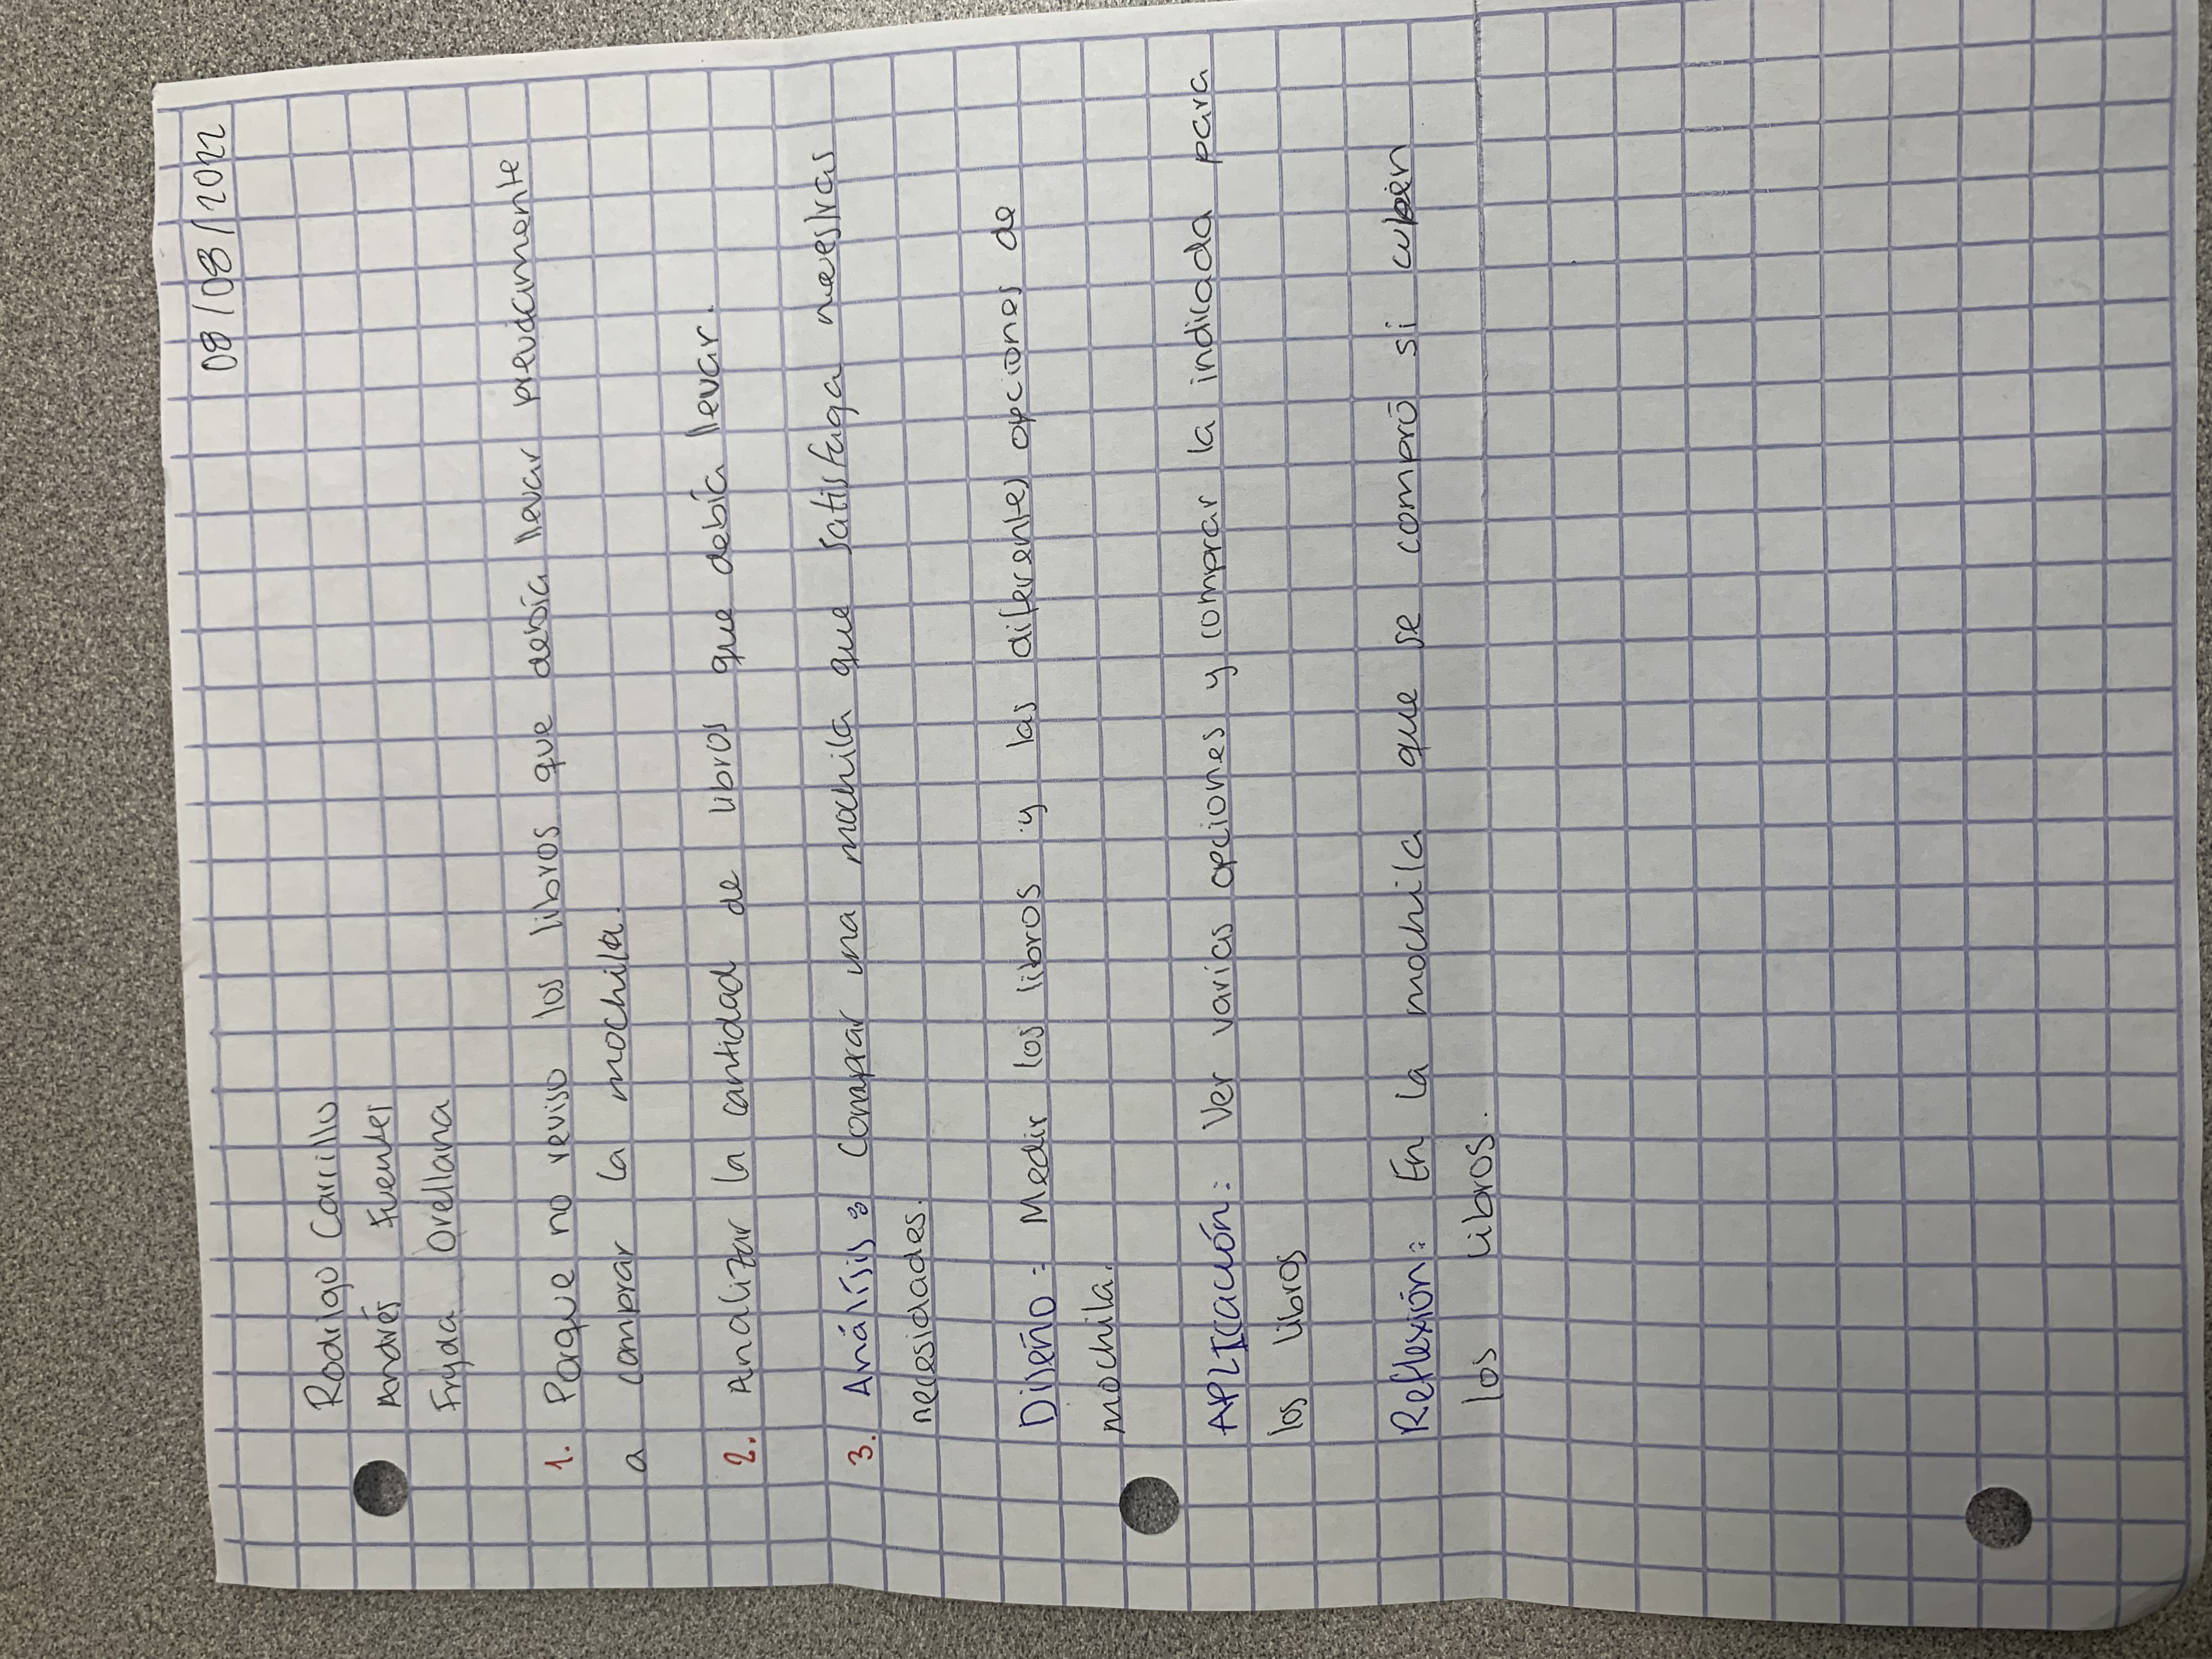 08/08/2022
Rodrigo Carrillo
Andrés Fuentes
Fryda Orellana
1. Porque no reviso los libros que debía llevar previamente
a comprar la mochila.
2. Analizar la cantidad de libros que debía llevar.
3. Análisis: Comprar una mochila que satisfaga nuestras
necesidades.
Diseño: Medir los libros y las diferentes opciones de
mochila.
APLICación: Ver varias opciones y comprar la indicada para
los libros
Reflexión: En la mochila que se compró si cupen
los libros.